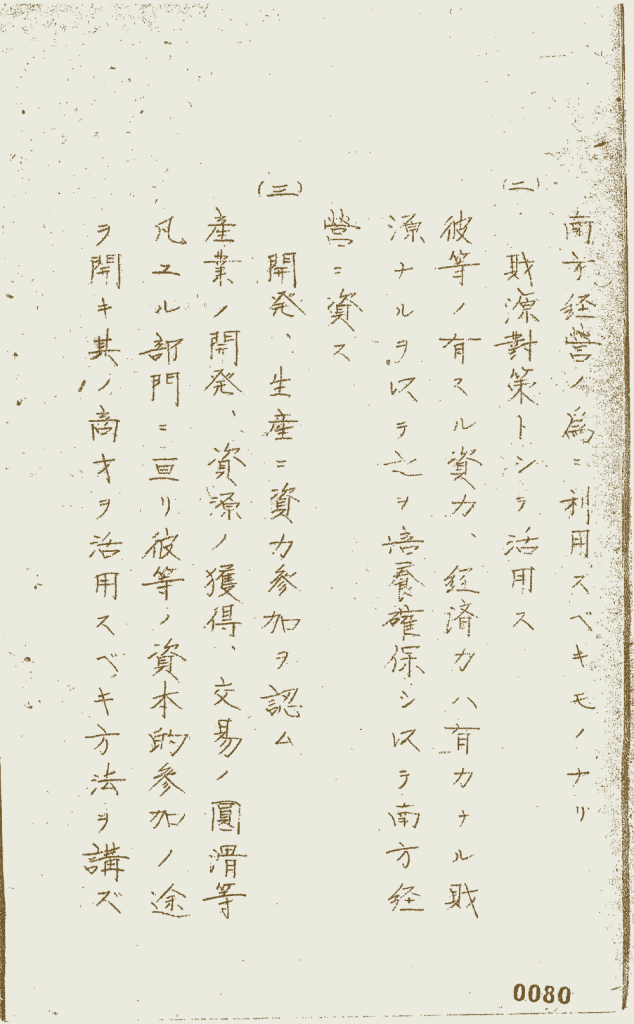 南方経営ノ為ニ利用スベキモノナリ
(二) 財源對策トシテ活用ス
彼等ノ有スル資力、経済力ハ有力ナル財
源ナルヲ以テ之ヲ培養確保シ以テ南方経
営ニ資ス
(三) 開発、生産ニ資力参加ヲ認ム
産業ノ開発、資源ノ獲得、交易ノ圓滑等
凡ユル部門ニ亘リ彼等ノ資本的参加ノ途
ヲ開キ其ノ商才ヲ活用スベキ方法ヲ講ズ
0080